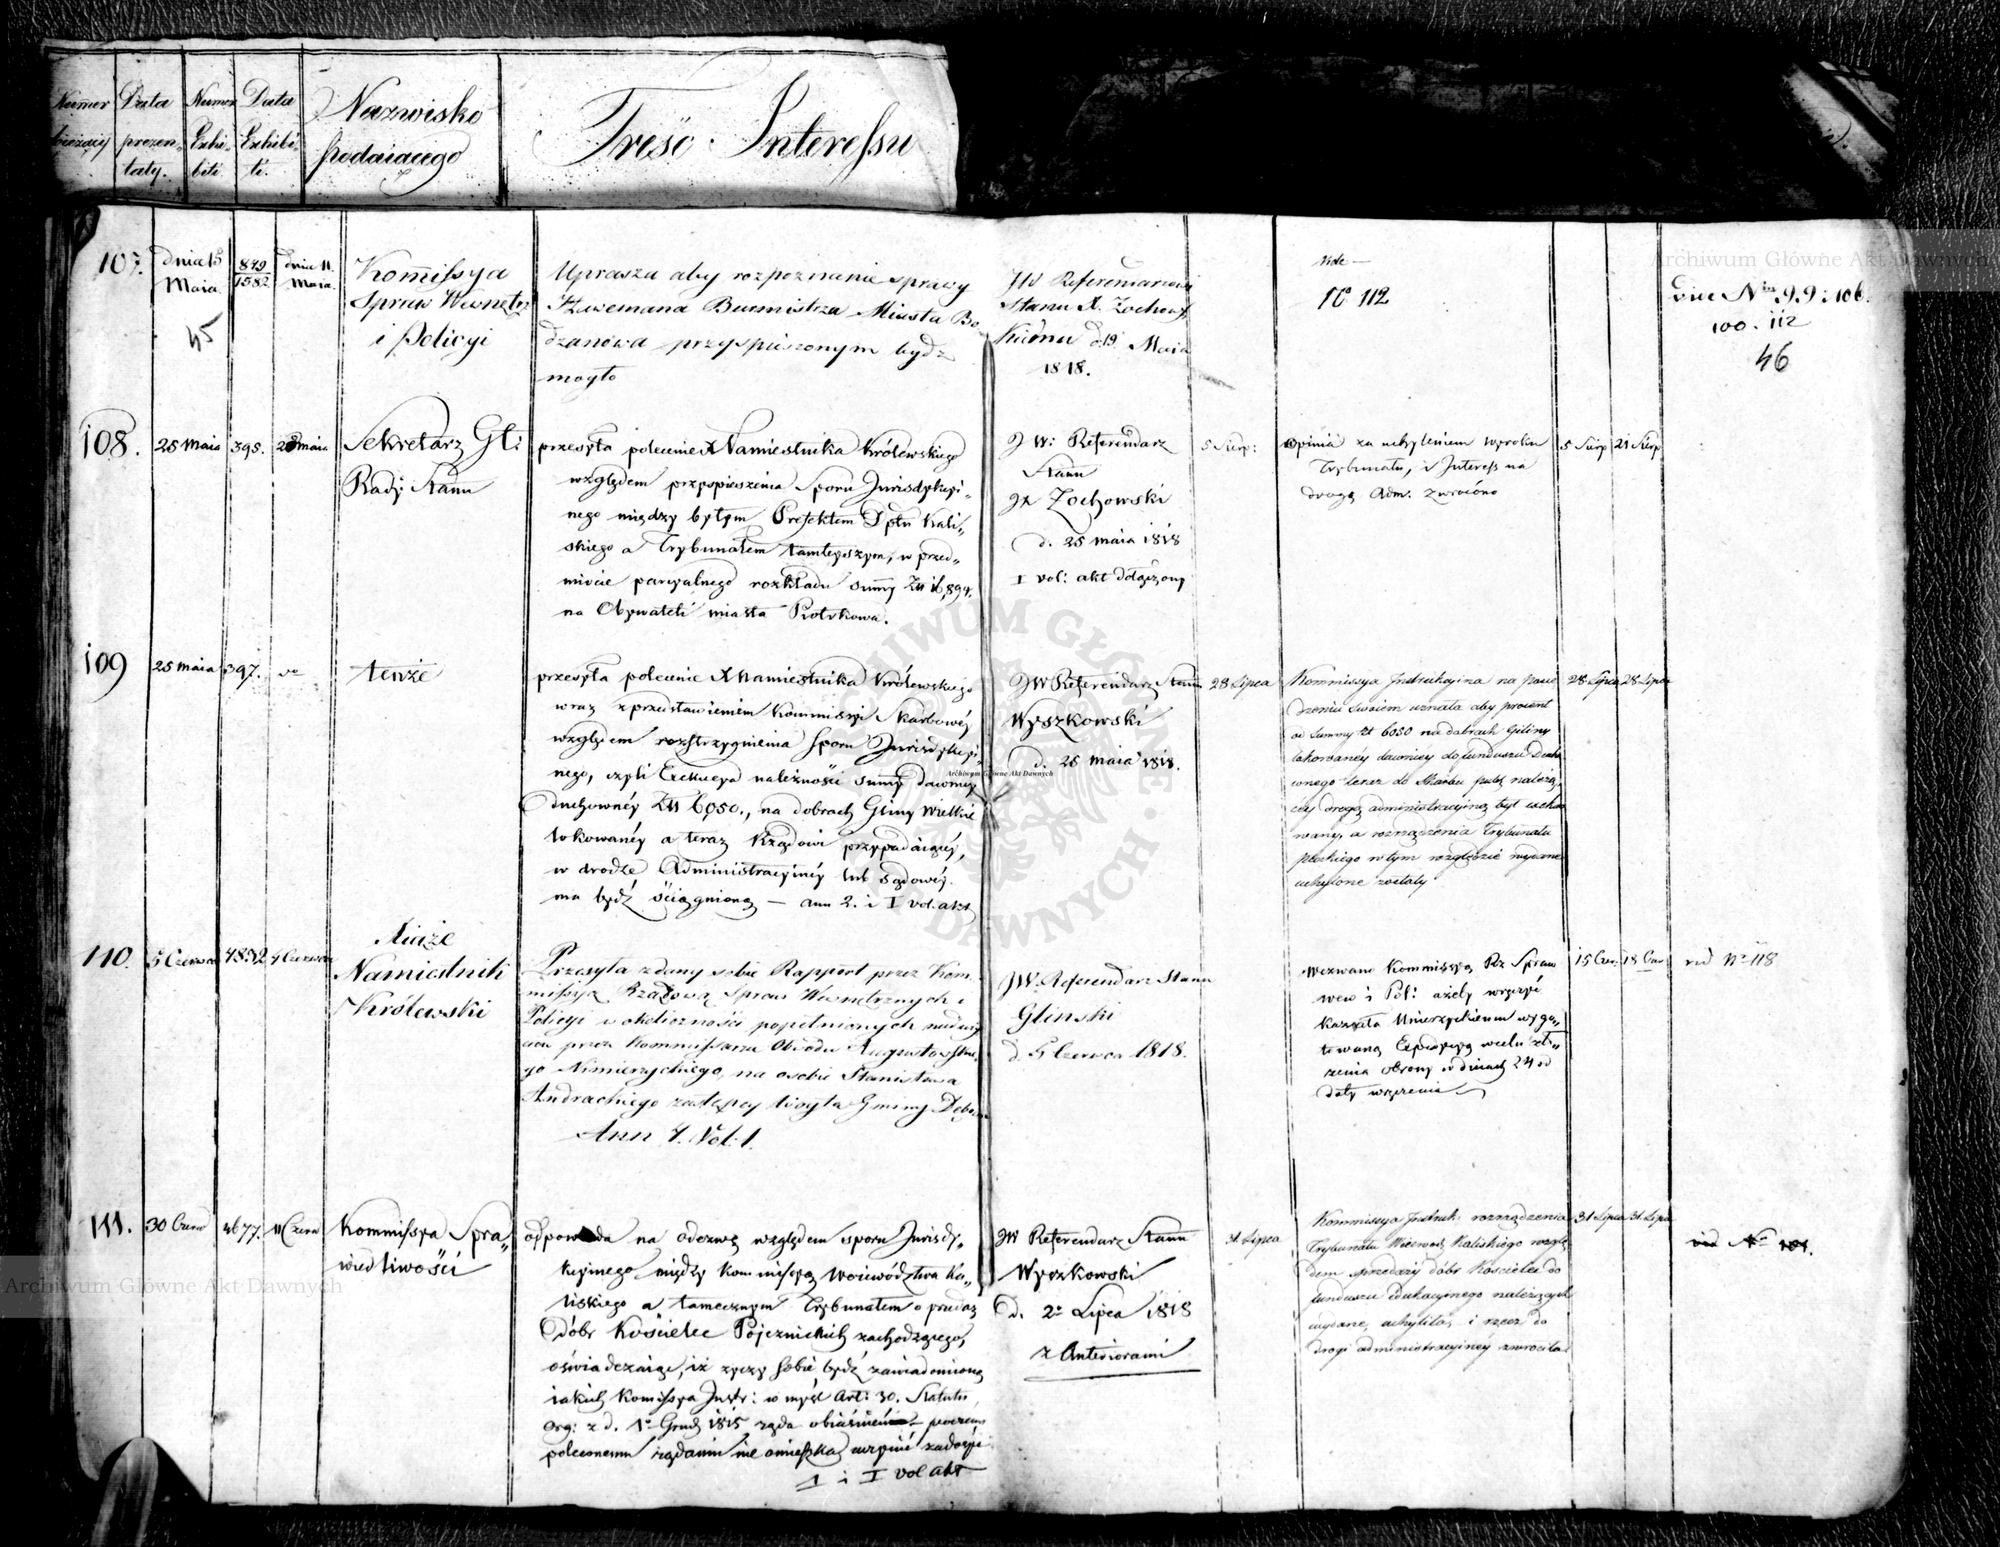 Numer bieżący
Data prezentaty.
Numer Exhibiti.
Data Exhibiti.
Nazwisko podaiącego
Treść Interessu
107.
dnia 15
Maia.
45
849
1582
dnia 11.
Maia.
Kommissya
Spraw Wewnętrz
i Policyi
Uprasza aby rozpoznanie sprawy
Burmistrza Miasta Bo
dzanowa przyspieszonym bydź
mogło
JW Referendarzowi
Stanu X. Żochows
kiemu d. 19 Maia
1818.
vide —
112
vice Nris 99: 106.
100. 112
46
108.
25 Maia
395.
maia
Sekretarz Gł:
Rady Stanu
przesyła polecenie X Namiestnika Królewskiego
względem przyspieszenia Sporu Jurisdykcyi-
nego między byłym Prefektem Dptu Kali-
skiego a Trybunałem tamteyszym, w przed-
miocie parcyalnego rozkładu summy Złł 16,894.
na Obywateli miasta Piotrkowa.
JW: Referendarz
Stanu
JX Żochowski
d. 25 maia 1818
I vol: akt dołączony
5 Sierp:
Opinia za uchyleniem wyroku
Trybunału, i Interess na
drogę Adm. zwrócono
5 Sierp
21 Sierp
109
25 maia
397.
do
tenże
przesyła polecenie X Namiestnika Królewskiego
wraz z przedstawieniem Kommissyi Skarbowéy
względem rozstrzygnienia Sporu Jurisdykcyi-
nego, czyli Exekucya należności summy dawniey
duchownéy Złł 6,050., na dobrach Gliny Wielkie
lokowanéy a teraz Rządowi przypadaiącéy,
w drodze Administracyinéy lub Sądowéy.
ma bydź ściągnioną — ann 2. i I vol. akt
JW Referendarz Stanu
Wyszkowski
d. 25 maia 1818.
28 Lipca
Kommissya Instrukcyina na posie
dzeniu swoiem uznała aby procent
od summy zł 6050 na dobrach Gliny
lokowanéy dawniey do funduszu Ducho
wnego teraz do Skarbu publ należą
céy drogą administracyiną był exekw
wany, a rozrządzenia Trybunału
płockiego w tym względzie wydane
uchylone zostały
28 Lipca
28 Lipca
110.
5 Czerwca
4832
4 Czerwca
Xiąże
Namiestnik
Królewski
Przesyła zdany sobie Rapport przez Kom-
missyą Rządową Spraw Wewnętrznych i
Policyi w okoliczności popełnionych naduży
cia przez Kommissarza Obwodu Augustowskie
go Nimierzyckiego, na osobie Stanisława
Andrackiego zastępcy Woyta Gminy
Ann 4. Vol. 1.
JW. Referendarz Stanu
Gliński
d. 5 Czerwca 1818.
Wezwano Kommissyą Rz Spraw
wew i Pol: ażeby
wygo-
towaną
zło-
żenia obrony w dniach 24 od
daty wręczenia
15 Cze.
18 Cze
vid No 118
111.
30 Czerw
4677.
11 Czerw
Kommissya Spra-
wiedliwości
odpowiada na odezwę względem sporu Jurisdy-
kcyinego między Kommissyą Województwa Ka-
liskiego a tamecznym Trybunałem o przedaż
dóbr Kościelec Pojeznickich zachodzącego,
oświadczaiąc, iż życzy sobie, bydź zawiadomioną
iakich Kommissya Instr: w myśl Art: 30. Statutu
Org: z d. 1o Grud 1815 rząda obiaśnień — poczem
poleconemu rządaniu nie omieszka uczynić zadosyć
1 i I vol akt
JW Referendarz Stanu
Wyszkowski
d. 2o Lipca 1818
z Anterioramí
31 Lipca
Kommissya Instruk. rozrządzenia
Trybunału Wiewodz Kaliskiego wzglę
dem sprzedaży dóbr Kościelec do
funduszu edukacyinego należących
wydane, uchyliła, i rzecz do
drogi administracyinéy zwróciła.
31 Lipca
31 Lipca
vid No 101.
Archiwum Główne Akt Dawnych
Archiwum Główne Akt Dawnych
Archiwum Główne Akt Dawnych
ARCHIWUM GŁÓWNE
AKT DAWNYCH